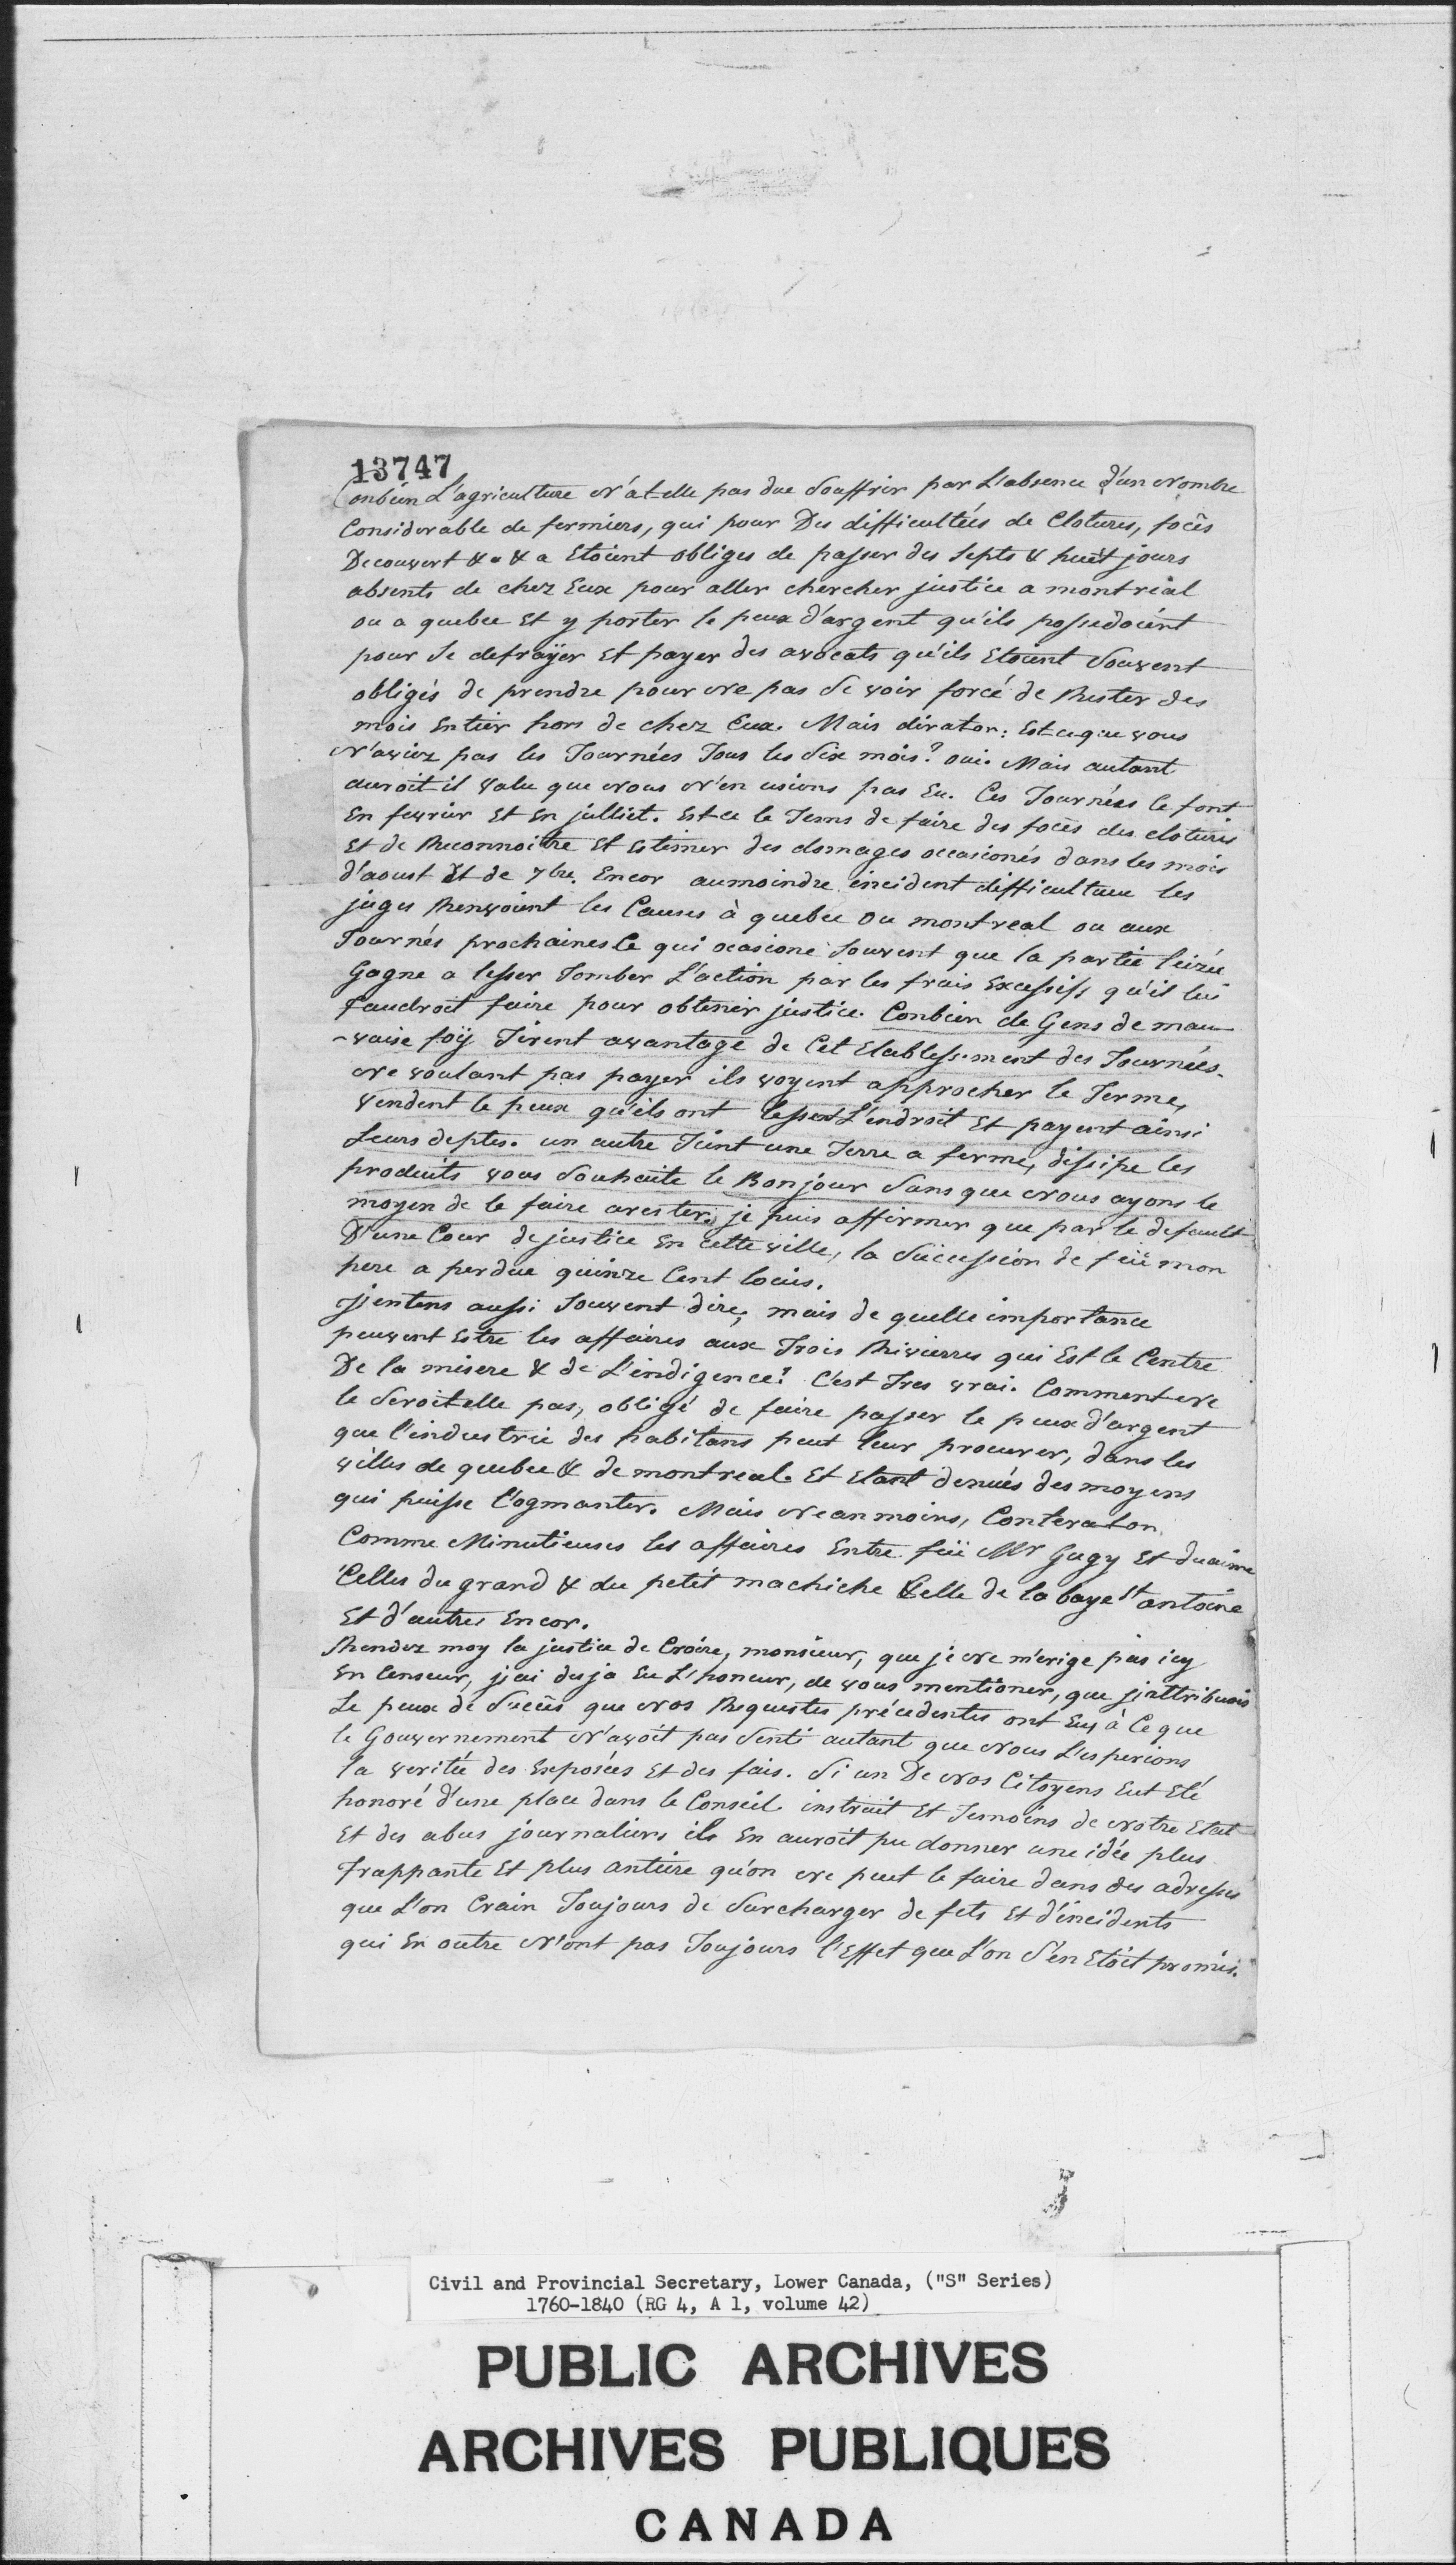 13747
Conbien L'agriculture N'at elle pas due Souffrir par L'absence d'un Nombre
Considerable de fermiers, qui pour Des difficultées de Clotures, focés
Decouvert &a &a Etoient obliges de passer des Septs & huit jours
absents de chez Eux pour aller chercher justice a montreal
ou a quebec Et y porter le peux d'argent qu'ils possedoient
pour Se defraÿer Et payer des avocats qu'ils Etoient Souvent
obligés de prendre pour ne pas Se voir forcé de Rester des
mois Entier hors de chez Eux. Mais dirat on: Est ce que vous
N'aviez pas les Tournées Tous les Six mois? oui. Mais autant
auroit il Valu que Nous N'en usions pas Eu. Ces Tournées Ce font
En fevrier Et En julliet. Est ce le Tems de faire des focés des clotures
Et de Reconnoitre Et Estimer des domages occasionés dans les mois
d'aoust Et de 7bre. Encor aumoindre incident difficultueux les
juges Renvoient les Causes à quebec Ou montreal ou aux
Tournés prochaines Ce qui ocasione Souvent que la partie leizée
Gagne a lesser Tomber L'action par les frais Excessifs qu'il lui
faudroit faire pour obtenir justice. Conbien de Gens de mau-
-vaise foÿ Tirent avantage de Cet Etablessement des Tournées.
Ne voulant pas payer ils voyent approcher le Terme,
Vendent le peux qu'ils ont lessent L'endroit Et payent ainsi
Leurs deptes. un autre Tient une Terre a ferme, dissipe les
produits vous Souhaite le Bonjour Sans que Nous ayons le
moyen de le faire arester. je puis affirmer que par le default
D'une Cour de justice En cette ville, la Sucession de feü mon
pere a perdue quinze Cent louis.
J'jentens aussi Souvent dire, mais de quelle importance
peuvent Estre les affaires aux Trois Rivierres qui Est le Centre
De la misere & de L'indigence? C'est Tres vrai. Comment Ne
le Seroit elle pas, obligé de faire passer le peux d'argent
que l'industrie des habitans peut leur procurer, dans les
villes de quebec & de montreal. Et Etant denués des moyens
qui puisse l'ogmanter. Mais Neanmoins, Conterat on
Comme Minutieuses les affaires Entre feü Mr Gugy Et duaime
Celles du grand & du petit machiche Celle de la baye St antoine
Et d'autres Encor.
Rendez moy la justice de Croire, monsieur, que je ne m'erige pas icy
En Censeur, j'ai deja Eu L'honeur, de vous mentioner, que j'attribuois
Le peux de Succés que Nos Requestes précedentes ont Eus à Ce que
le Gouvernement N'avoit pas Senti autant que Nous L'esperions
la veritée des Exposées Et des fais. Si un De Nos Citoyens Eut Eté
honoré d'une place dans le Conseil instruit Et Temoins de Notre Etat
Et des abus journaliers ils En auroit pu donner une idée plus
frappante Et plus antiere qu'on Ne peut le faire dans des adresses
que L'on Crain Toujours de Surcharger de fets Et d'incidents
qui En outre N'ont pas Toujours l'Effet que L'on S'en Etoit promis.
Civil and Provincial Secretary, Lower Canada, ("S" Series)
1760-1840 (RG 4, A 1, volume 42)
PUBLIC ARCHIVES
ARCHIVES PUBLIQUES
CANADA